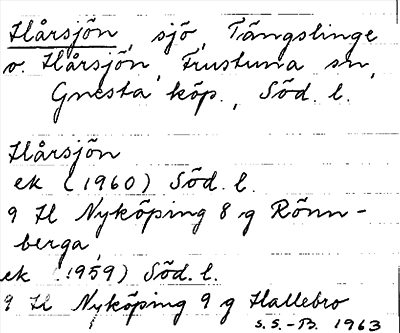 Hårsjön, sjö, Tängslinge
o. Hårsjön, Frustuna sn,
Gnesta köp., Söd. l.
Hårsjön
ek (1960) Söd. l.
9 H Nyköping 8 g Rönn-
berga
ek (1959) Söd. l.
9 H Nyköping 9 g Hallebro
S.S.-B. 1963